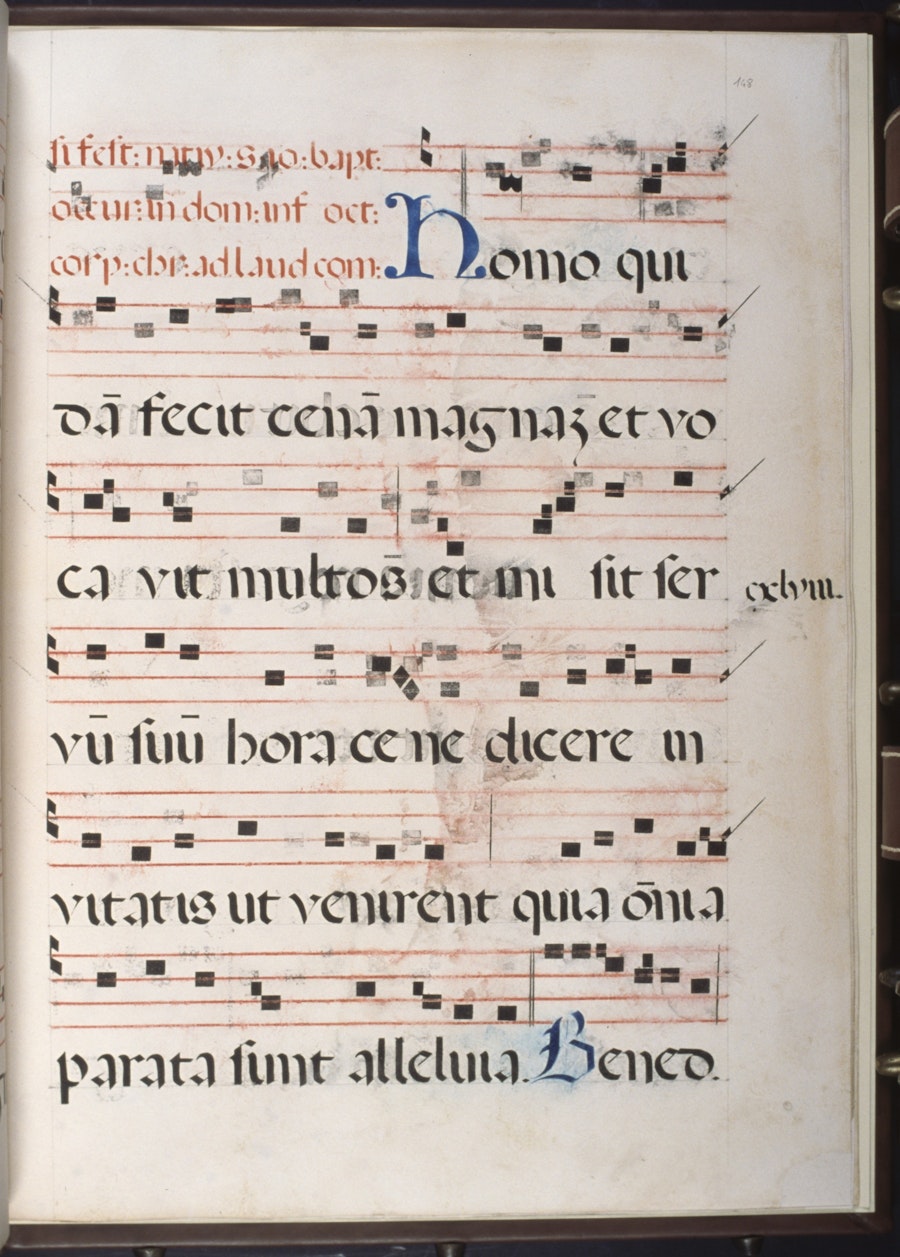 148
si fest: nativ: s. io: bapt:
occur: in dom: inf oct:
corp: chr: ad laud com:
Homo qui
dā fecit cenā magnaʒ et vo
ca vit multos̄ et mi sit ser
cxlviii.
vū suū hora cene dicere in
vitatis ut venirent quia ōnia
parata sunt alleluia. Bened.